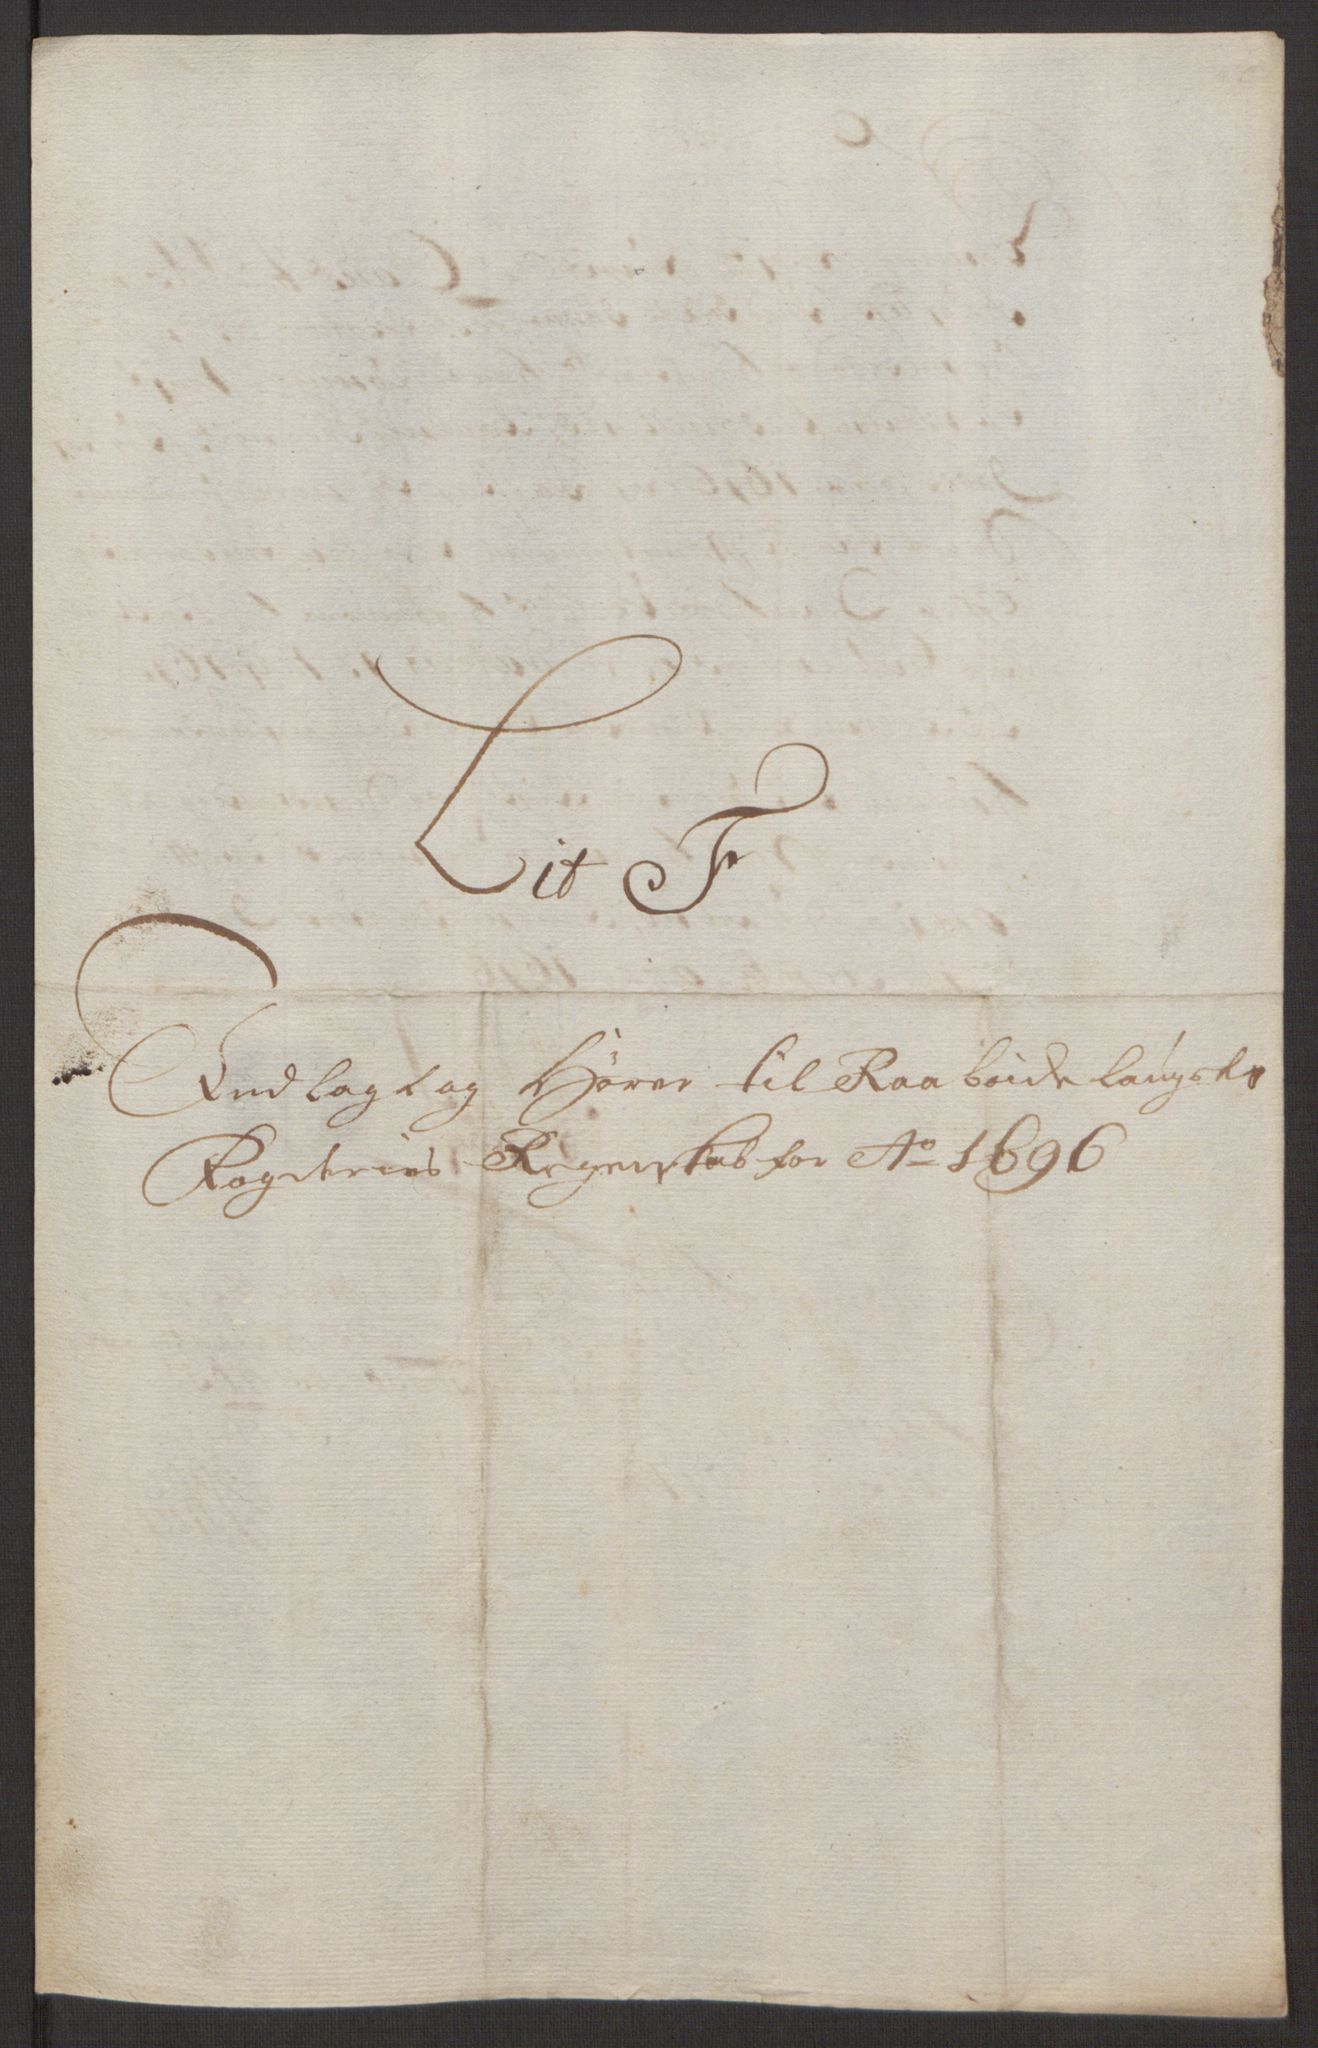 Lit F
Indlagt og Hører til Raabøidelaugetz
Fogderies Regenskab for Ao 1696